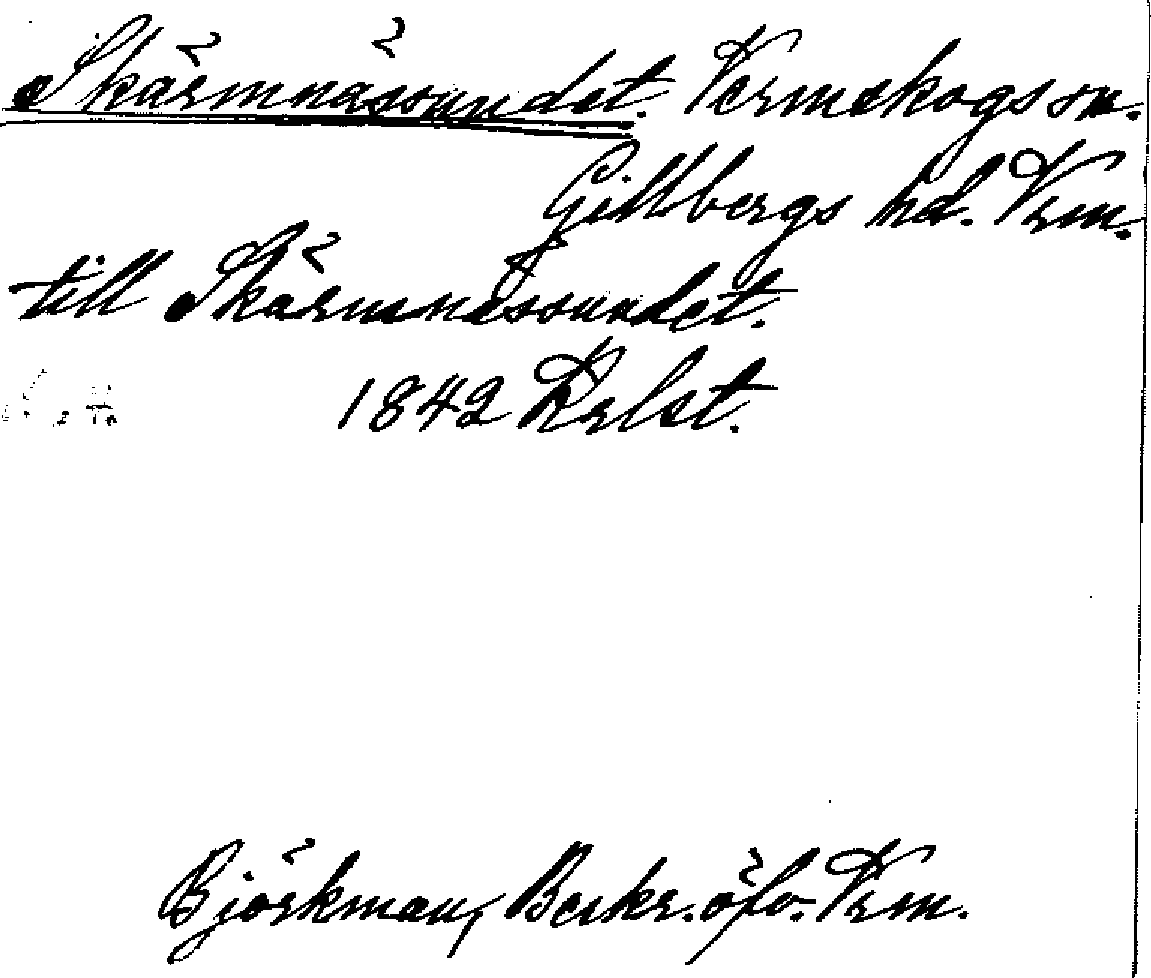 Skärmnässundet. Vermskogs sn.
Gillbergs hd. Vrm.
till Skärmnässundet.
1842 Krlst.
Björkman, Beskr. öfv. Vrm.